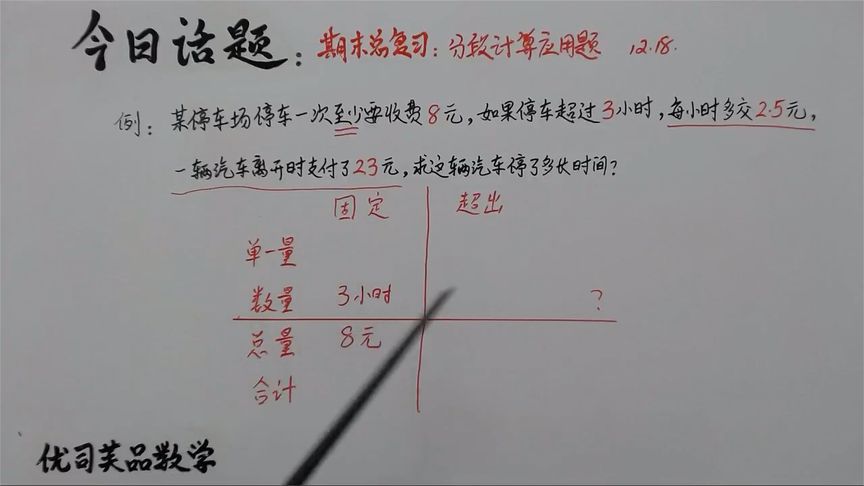 今日话题：期末总复习：分段计算应用题 12.18.
例：某停车场停车一次至少要收费8元，如果停车超过3小时，每小时多交2.5元，
一辆汽车离开时支付了23元，求这辆汽车停了多长时间？
固定 超出
单一量
数量 3小时 ？
总量 8元
合计
优司芙品数学